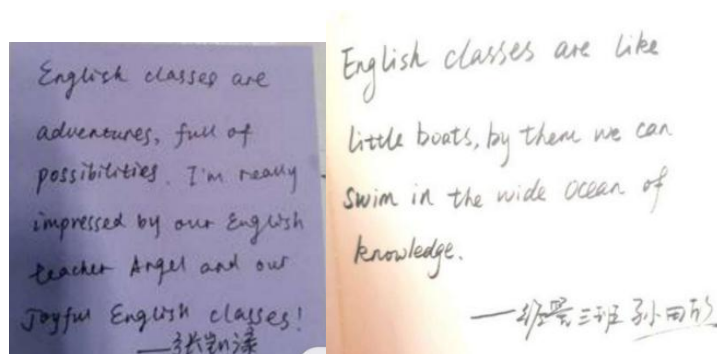 English classes are
adventures, full of
possibilities. I'm really
impressed by our English
teacher Angel and our
joyful English classes!
English classes are like
little boats, by them we can
swim in the wide ocean of
knowledge.